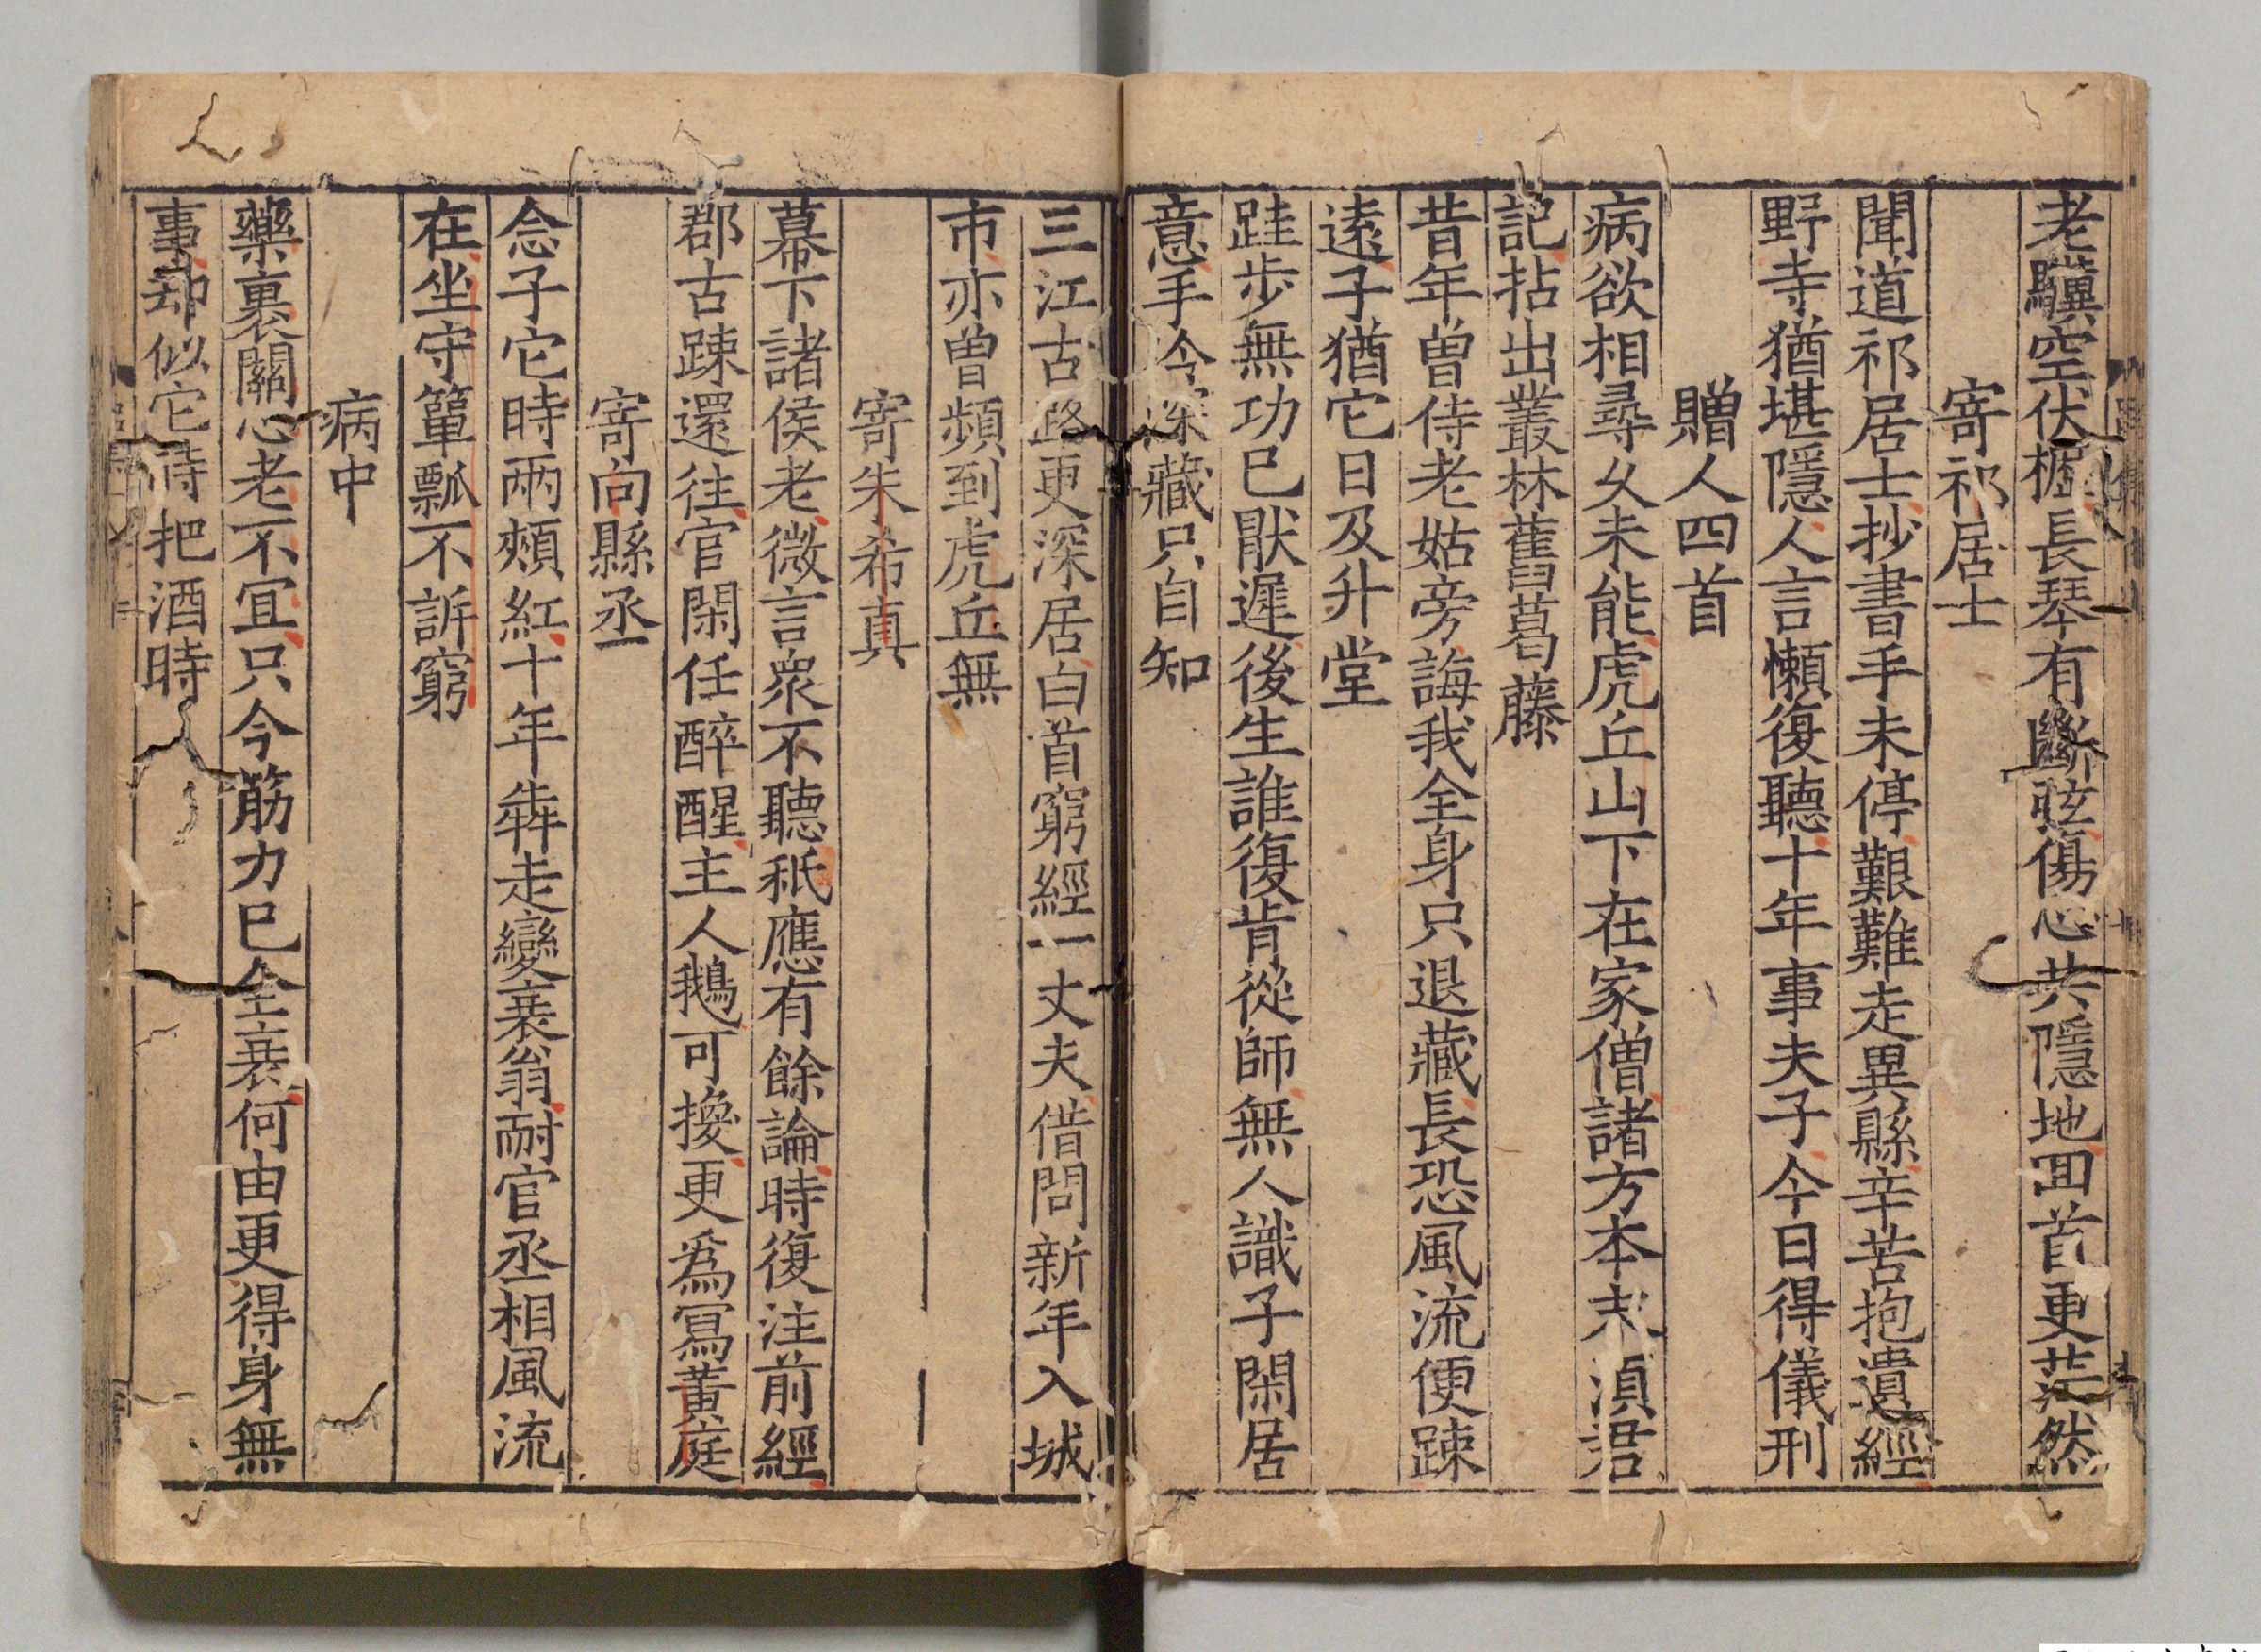 老驥空伏櫪長琴有斷弦傷心共隱地囬首更茫然
寄祁居士
聞道祁居士抄書手未停艱難走異縣辛苦抱遺經
野寺猶堪隱人言懶復聽十年事夫子今日得儀刑
贈人四首
病欲相尋久未能虎丘山下在家僧諸方本末湏君
記拈出叢林舊葛藤
昔年曽侍老姑旁誨我全身只退藏長恐風流便踈
逺子猶它日及升堂
跬歩無功已猒遲後生誰復肯從師無人識子閑居
意手今深藏只自知
三江古路更深居白首窮經一丈夫借問新年入城
市亦曽頻到虎丘無
寄朱希真
幕下諸侯老微言衆不聽秖應有餘論時復注前經
郡古踈還往官閑任醉醒主人鵝可換更爲寫黃庭
寄向縣丞
念子它時兩頰紅十年犇走變衰翁耐官丞相風流
在坐守簞瓢不訴窮
病中
藥裹關心老不冝只今筋力已全衰何由更得身無
事却似它時把酒時